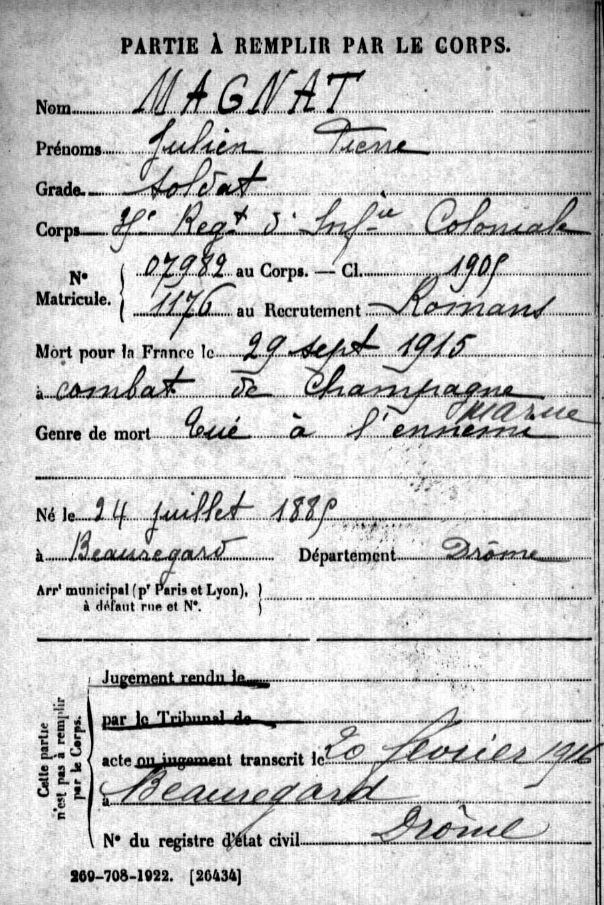 PARTIE À REMPLIR PAR LE CORPS.
Nom MAGNAT
Prénoms Julien Pierre
Grade Soldat
Corps Regt d'Infie Coloniale
N° Matricule. 07982 au Corps. — Cl. 1905
1176 au Recrutement Romans
Mort pour la France le 29 sept 1915
à combat de Champagne
Marne
Genre de mort tué à l'ennemi
Né le 24 juillet 1885
à Beauregard Département Drôme
Arrt municipal (pr Paris et Lyon),
à défaut rue et N°.
Cette partie n'est pas à remplir par le Corps.
Jugement rendu le
par le Tribunal de
acte ou jugement transcrit le 20 février 1916
à Beauregard
Drôme
N° du registre d'état civil
269-708-1922. [26434]